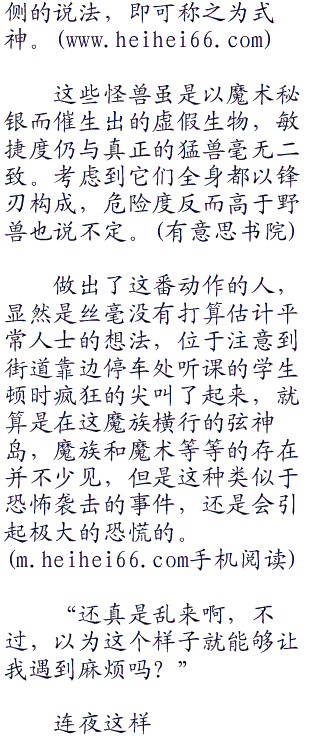 侧的说法，即可称之为式
神。(www.heihei66.com)
这些怪兽虽是以魔术秘
银而催生出的虚假生物，敏
捷度仍与真正的猛兽毫无二
致。考虑到它们全身都以锋
刃构成，危险度反而高于野
兽也说不定。(有意思书院)
做出了这番动作的人，
显然是丝毫没有打算估计平
常人士的想法，位于注意到
街道靠边停车处听课的学生
顿时疯狂的尖叫了起来，就
算是在这魔族横行的弦神
岛，魔族和魔术等等的存在
并不少见，但是这种类似于
恐怖袭击的事件，还是会引
起极大的恐慌的。
(m.heihei66.com手机阅读)
“还真是乱来啊，不
过，以为这个样子就能够让
我遇到麻烦吗？”
连夜这样